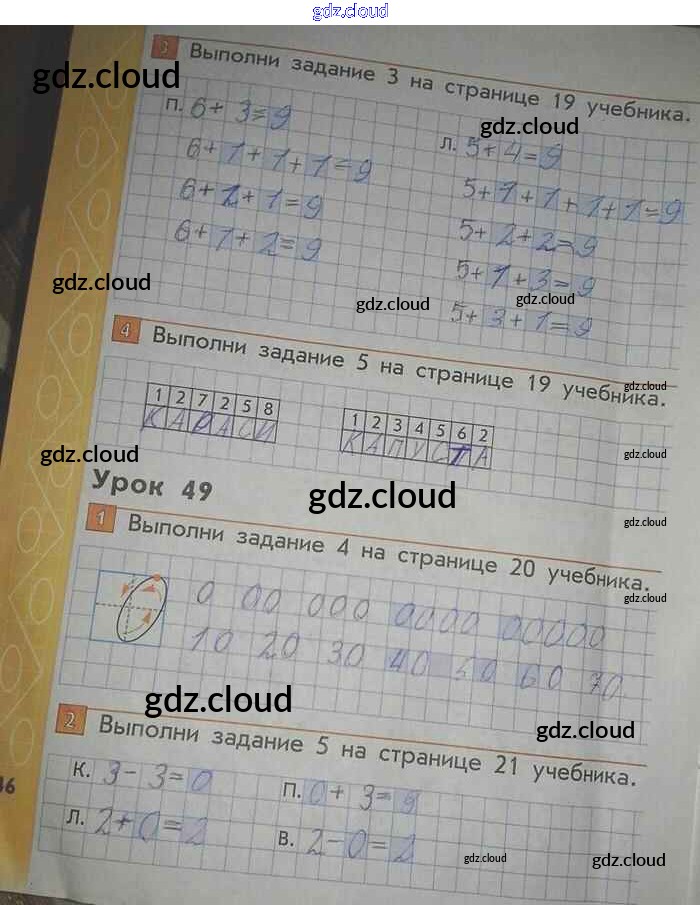 gdz.cloud
3 Выполни задание 3 на странице 19 учебника.
gdz.cloud
п. 6+3=9
gdz.cloud
л. 5+4=9
6+1+1+1=9
5+1+1+1+1=9
6+2+1=9
5+2+2=9
6+1+2=9
5+1+3=9
gdz.cloud
gdz.cloud
gdz.cloud
5+3+1=9
4 Выполни задание 5 на странице 19 учебника.
gdz.cloud
1 2 7 2 5 8
КАРАСИ
1 2 3 4 5 6 2
КАПУСТА
gdz.cloud
gdz.cloud
Урок 49
gdz.cloud
gdz.cloud
1 Выполни задание 4 на странице 20 учебника.
gdz.cloud
0 00 000 0000 00000
10 20 30 40 50 60 70
gdz.cloud
2 Выполни задание 5 на странице 21 учебника.
gdz.cloud
к. 3-3=0
п. 0+3=9
л. 2+0=2
в. 2-0=2
gdz.cloud
gdz.cloud